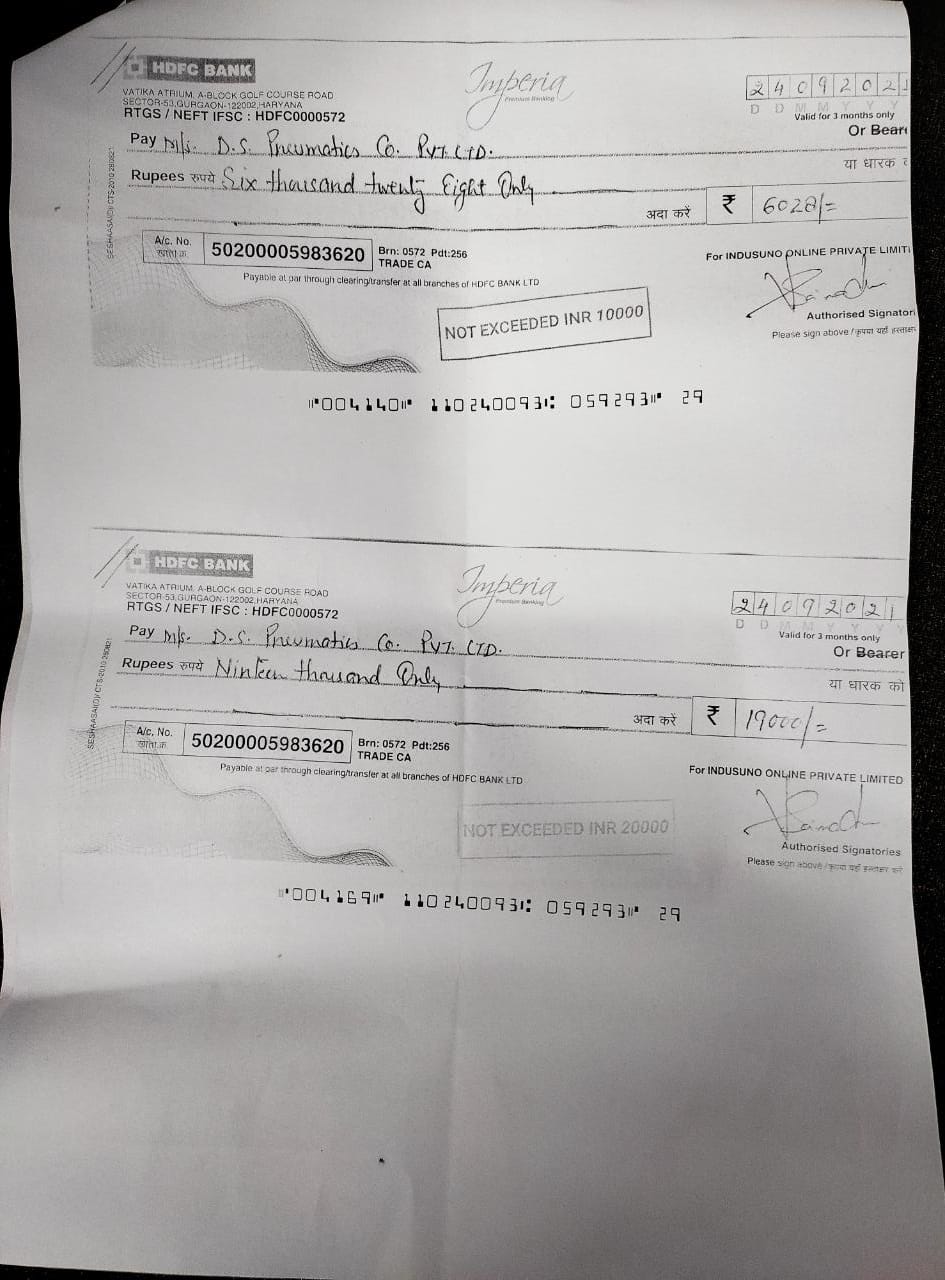 HDFC BANK
Imperia
Premium Banking
VATIKA ATRIUM, A-BLOCK GOLF COURSE ROAD
SECTOR-53,GURGAON-122002,HARYANA
RTGS / NEFT IFSC : HDFC0000572
2409202
D D M M Y Y Y
Valid for 3 months only
Or Bear
Pay M/s. D.S. Pneumatics Co. Pvt. LTD.
या धारक
Rupees रुपये Six thousand twenty Eight Only
अदा करें ₹ 6028/=
A/c. No.
खाता क्र.
50200005983620
Brn: 0572 Pdt:256
TRADE CA
Payable at par through clearing/transfer at all branches of HDFC BANK LTD
For INDUSUNO ONLINE PRIVATE LIMIT
NOT EXCEEDED INR 10000
Authorised Signator
Please sign above / कृपया यहाँ हस्ताक्षर
SESHAASAI(D)/ CTS-2010 280621
⑈004140⑈ 110240093⑆ 059293⑈ 29
HDFC BANK
Imperia
Premium Banking
VATIKA ATRIUM, A-BLOCK GOLF COURSE ROAD
SECTOR-53,GURGAON-122002,HARYANA
RTGS / NEFT IFSC : HDFC0000572
24092021
D D M M Y Y Y Y
Valid for 3 months only
Or Bearer
Pay M/s. D.S. Pneumatics Co. Pvt. LTD.
या धारक को
Rupees रुपये Ninteen thousand Only
अदा करें ₹ 19000/=
A/c. No.
खाता क्र.
50200005983620
Brn: 0572 Pdt:256
TRADE CA
Payable at par through clearing/transfer at all branches of HDFC BANK LTD
For INDUSUNO ONLINE PRIVATE LIMITED
NOT EXCEEDED INR 20000
Authorised Signatories
Please sign above / कृपया यहाँ हस्ताक्षर करें
SESHAASAI(D)/ CTS-2010 280621
⑈004169⑈ 110240093⑆ 059293⑈ 29